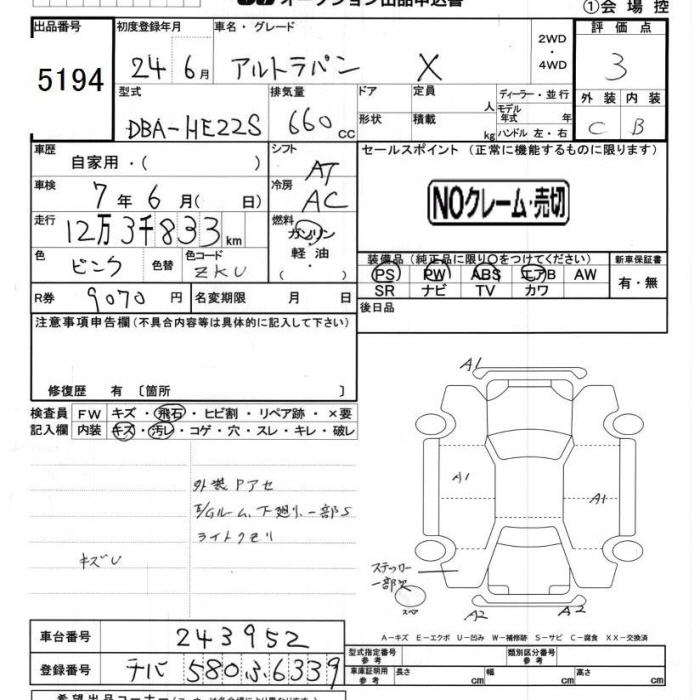 オークション出品申込書
①会場控
出品番号
5194
初度登録年月
24 6月
車名・グレード
アルトラパン X
2WD
・
4WD
評価点
3
型式
DBA-HE22S
排気量
660 cc
ドア
形状
定員 人
積載 kg
ディーラー・並行
モデル年式 年
ハンドル 左・右
外装 内装
C B
車歴
自家用・( )
シフト
AT
車検
7年6月( 日)
冷房
AC
走行
12万3千833km
燃料
ガソリン
軽油
( )
色
ピンク
色替
色コード
ZKU
R券
9070円
名変期限 月 日
セールスポイント(正常に機能するものに限ります)
NOクレーム・売切
装備品(純正品に限り○をつけてください)
PS PW ABS エアB AW
SR ナビ TV カワ
新車保証書
有・無
後日品
注意事項申告欄(不具合内容等は具体的に記入して下さい)
修復歴 有〔箇所 〕
検査員
記入欄
FW キズ・飛石・ヒビ割・リペア跡・×要
内装 キズ・汚レ・コゲ・穴・スレ・キレ・破レ
外装Pアセ
E/Gルーム、下廻り、一部S
ライトクモリ
キズU
A1
A1
A1
ステッカー
一部欠
スペア
A2
A2
A-キズ E-エクボ U-凹み W-補修跡 S-サビ C-腐食 XX-交換済
車台番号
243952
登録番号
チバ 580 ふ 6339
型式指定番号
参考
類別区分番号
参考
車庫証明用
参考
長さ cm
幅 cm
高さ cm
希望出品コーナー